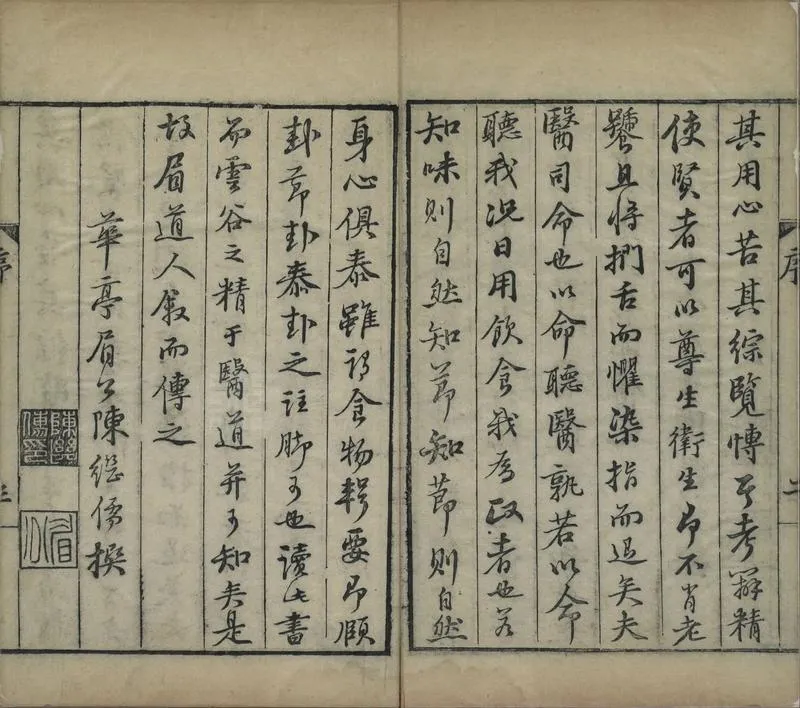 序
二
其用心苦其綜覽愽亓考辯精
使賢者可以尊生衛生即不肖老
饕且將捫舌而懼染指而退矣夫
醫司命也以命聽醫孰若以命
聽我況日用飲食我為政者也若
知味則自然知節知節則自然
身心俱泰雖謂食物輯要即頤
卦節卦泰卦之註脚可也讀此書
而雲谷之精于醫道并可知矣是
故眉道人敘而傳之
華亭眉公陳繼儒撰
陳繼儒印
眉公
序
三